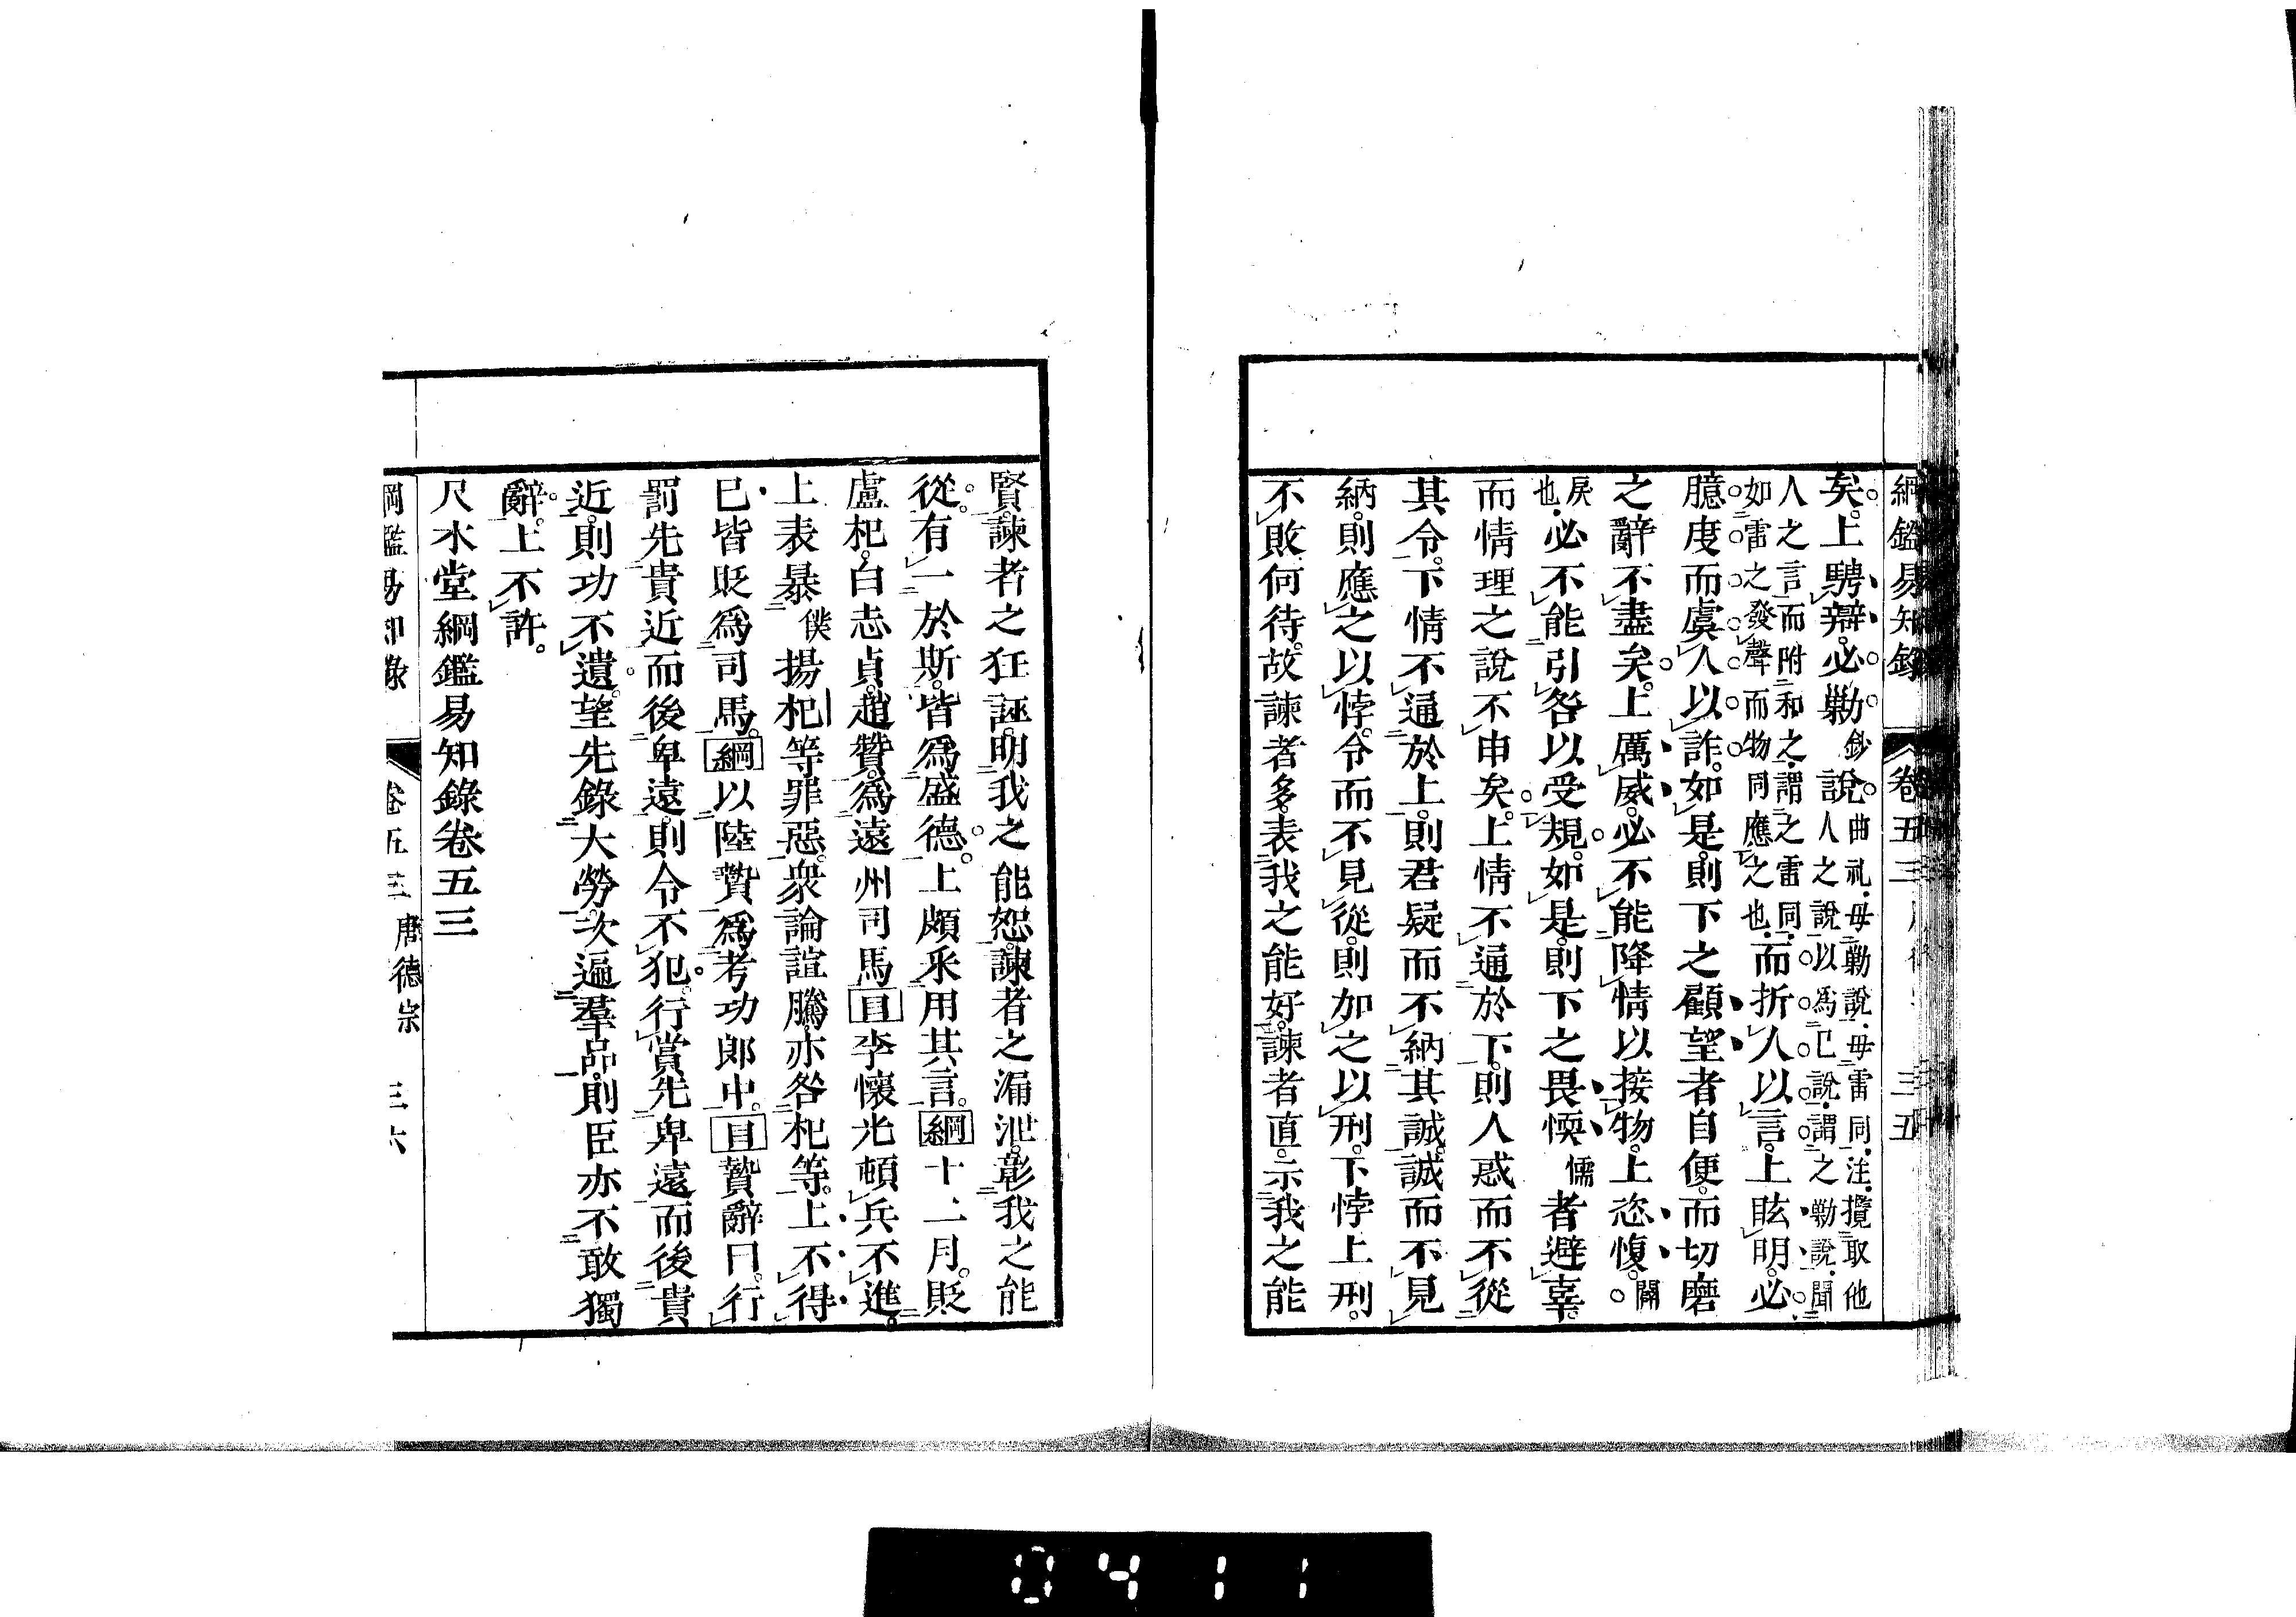 綱鑑易知錄 卷五三 三五
矣。上騁辯。必勦鈔說。曲礼。毋勦說。毋雷同。注。攬取他
說人之說以為己說。謂之勦說。聞
人之言而附和之。謂之雷同。
如雷之發聲而物同應之也。而折人以言。上眩明。必
臆度而虞人以詐。如是。則下之顧望者自便。而切磨
之辭不盡矣。上厲威。必不能降情以接物。上恣愎。關
戾也。必不能引咎以受規。如是。則下之畏愞懦者避辜。
而情理之說不申矣。上情不通於下。則人惑而不從
其令。下情不通於上。則君疑而不納其誠。誠而不見
納。則應之以悖。令而不見從。則加之以刑。下悖上刑。
不敗何待。故諫者多。表我之能好。諫者直。示我之能
賢。諫者之狂誣。明我之能恕。諫者之漏泄。彰我之能
從。有一於斯。皆爲盛德。上頗采用其言。綱十二月。貶
盧杞。白志貞。趙贊。爲遠州司馬目李懷光頓兵不進。
上表暴僕揚杞等罪惡。衆論諠騰。亦咎杞等。上不得
已皆貶爲司馬。綱以陸贄爲考功郎中。目贄辭曰。行
罰先貴近而後卑遠。則令不犯。行賞先卑遠而後貴
近。則功不遺。望先錄大勞。次遍羣品。則臣亦不敢獨
辭。上不許。
尺木堂綱鑑易知錄卷五三
綱鑑易知錄 卷五三 唐德宗 三六
0411